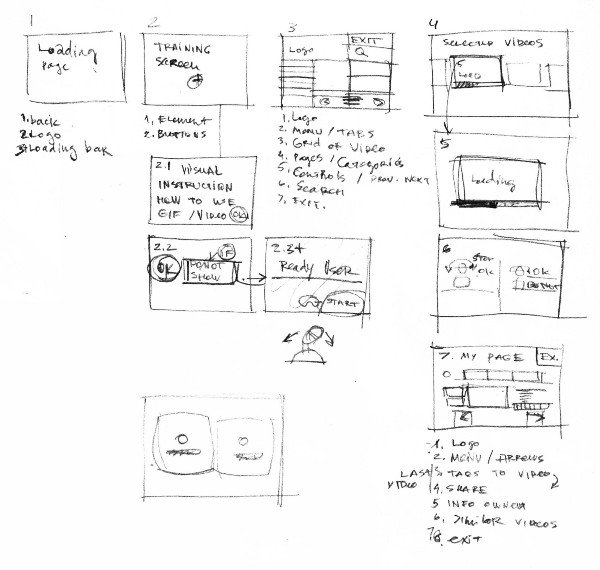 1
Loading
page
1. back
2. Logo
3. Loading bar
2
TRAINING
SCREEN
1. Element
2. BUTTONS
2.1 VISUAL
INSTRUCTION
HOW TO USE
GIF / VIDEO OK
2.2
OK
DO NOT
SHOW
IF
2.3
Ready User
START
3
EXIT
Logo
Q
1. Logo
2. MENU / TABS
3. Grid of Video
4. Pages / Categories
5. Controls / PREV. NEXT
6. Search
7. EXIT.
4
SELECTED VIDEOS
5
LOAD
5
Loading
6
OK
OK
7. MY PAGE
Ex.
1. Logo
2. MENU / ARROWS
LAST
VIDEO
3. TAGS TO VIDEO
4. SHARE
5 INFO OWNER
6. SIMILAR VIDEOS
8. exit